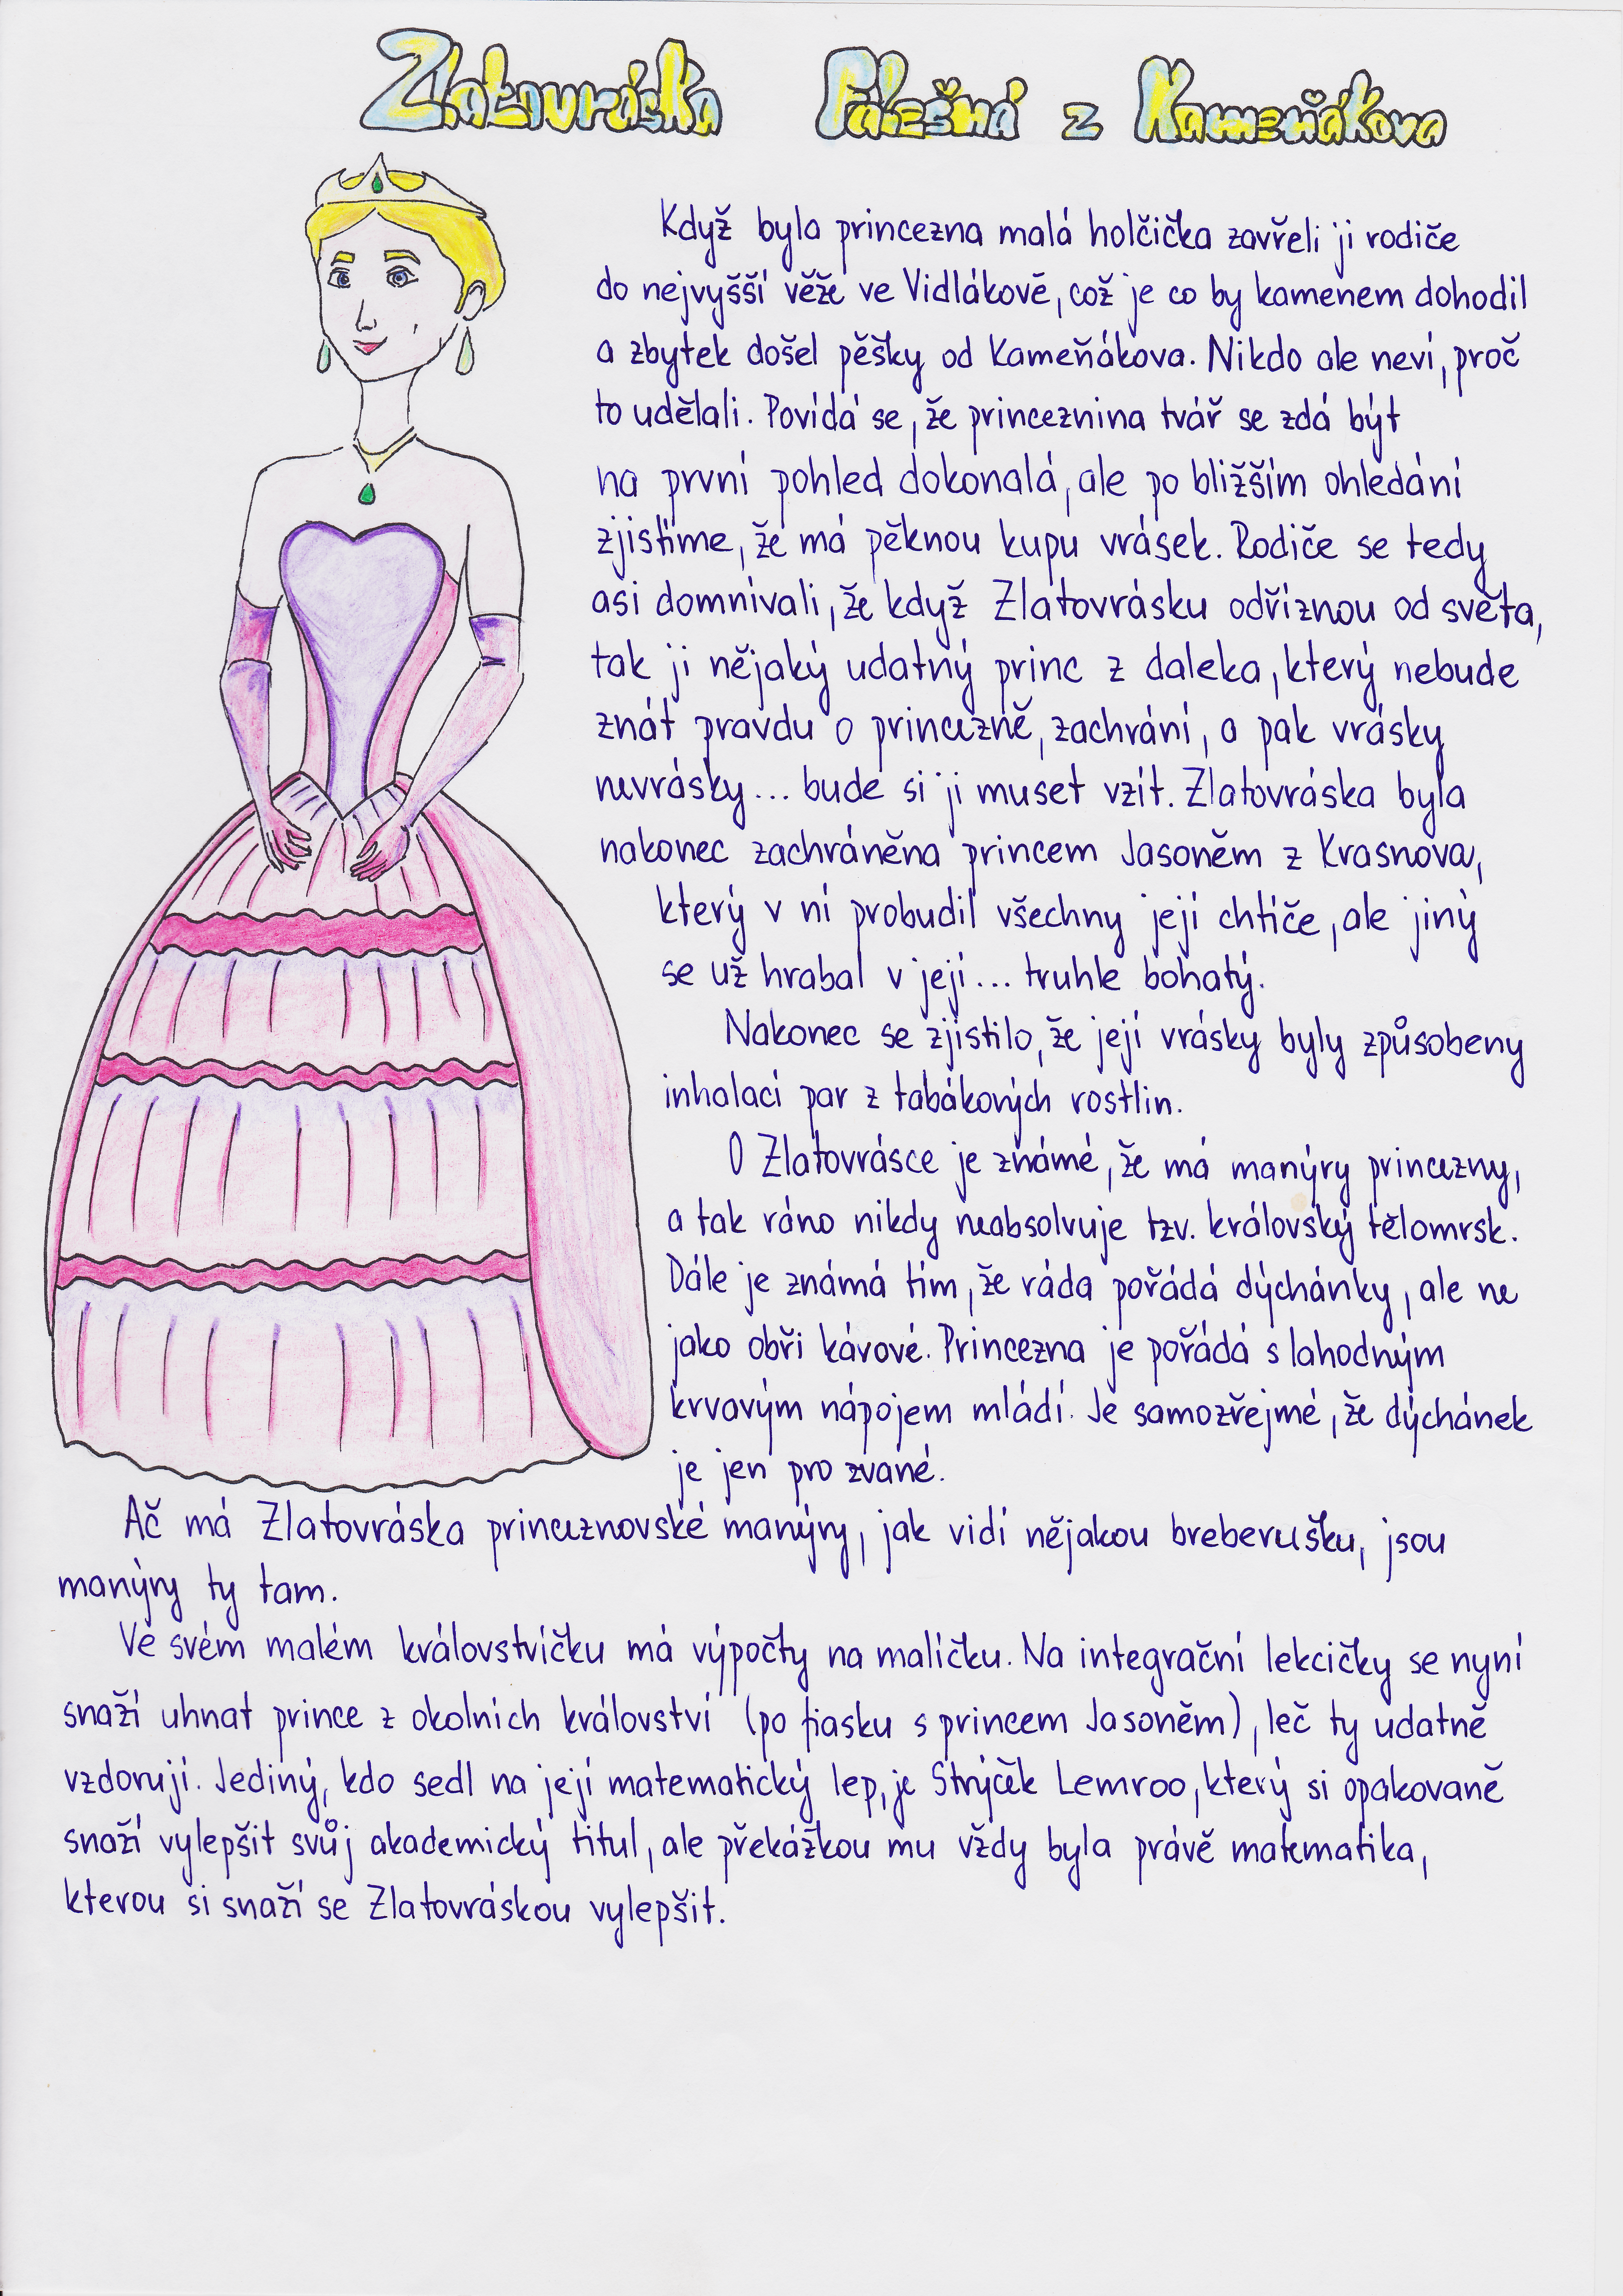 Zlatovráska Pálešná z Kameňákova
Když byla princezna malá holčička zavřeli ji rodiče
do nejvyšší věže ve Vidlákově, což je co by kamenem dohodil
a zbytek došel pěšky od Kameňákova. Nikdo ale neví, proč
to udělali. Povídá se, že princeznina tvář se zdá být
na první pohled dokonalá, ale po bližším ohledání
zjistíme, že má pěknou kupu vrásek. Rodiče se tedy
asi domnívali, že když Zlatovrásku odříznou od světa,
tak ji nějaký udatný princ z daleka, který nebude
znát pravdu o princezně, zachrání, a pak vrásky
nevrásky... bude si ji muset vzít. Zlatovráska byla
nakonec zachráněna princem Jasoněm z Krasnova,
který v ní probudil všechny její chtíče, ale jiný
se už hrabal v její... truhle bohatý.
Nakonec se zjistilo, že její vrásky byly způsobeny
inhalací par z tabákových rostlin.
O Zlatovrásce je známé, že má manýry princezny,
a tak ráno nikdy neabsolvuje tzv. královský tělomrsk.
Dále je známá tím, že ráda pořádá dýchánky, ale ne
jako obři kávové. Princezna je pořádá s lahodným
krvavým nápojem mládí. Je samozřejmé, že dýchánek
je jen pro zvané.
Ač má Zlatovráska princeznovské manýry, jak vidí nějakou breberušku, jsou
manýry ty tam.
Ve svém malém královstvíčku má výpočty na malíčku. Na integrační lekcičky se nyní
snaží uhnat prince z okolních království (po fiasku s princem Jasoněm), leč ty udatně
vzdorují. Jediný, kdo sedl na její matematický lep, je Strýček Lemroo, který si opakovaně
snaží vylepšit svůj akademický titul, ale překážkou mu vždy byla právě matematika,
kterou si snaží se Zlatovráskou vylepšit.